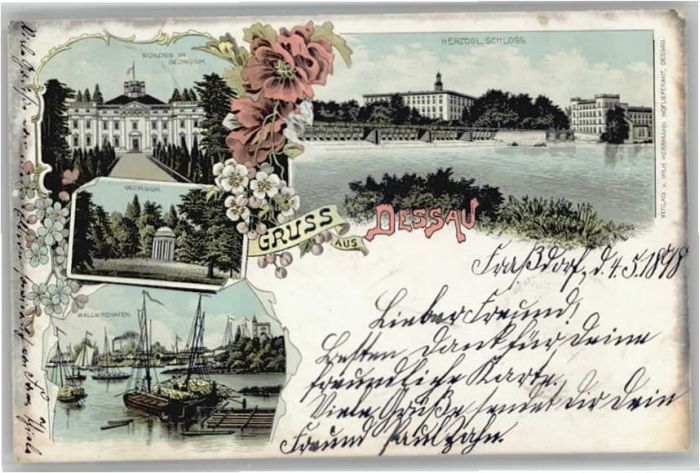 SCHLOSS IM
GEORGIUM.
HERZOGL. SCHLOSS.
GEORGIUM.
GRUSS AUS DESSAU
WALLWITZHAFEN.
VERLAG v. WILH. HERRMANN HOFLIEFERANT, DESSAU.
Fraßdorf, d. 4.5.1898
Lieber Freund!
Besten Dank für Deine
freundliche Karte.
Viele Grüße sendet Dir Dein
Freund Paul Zahn.
Viele Grüße